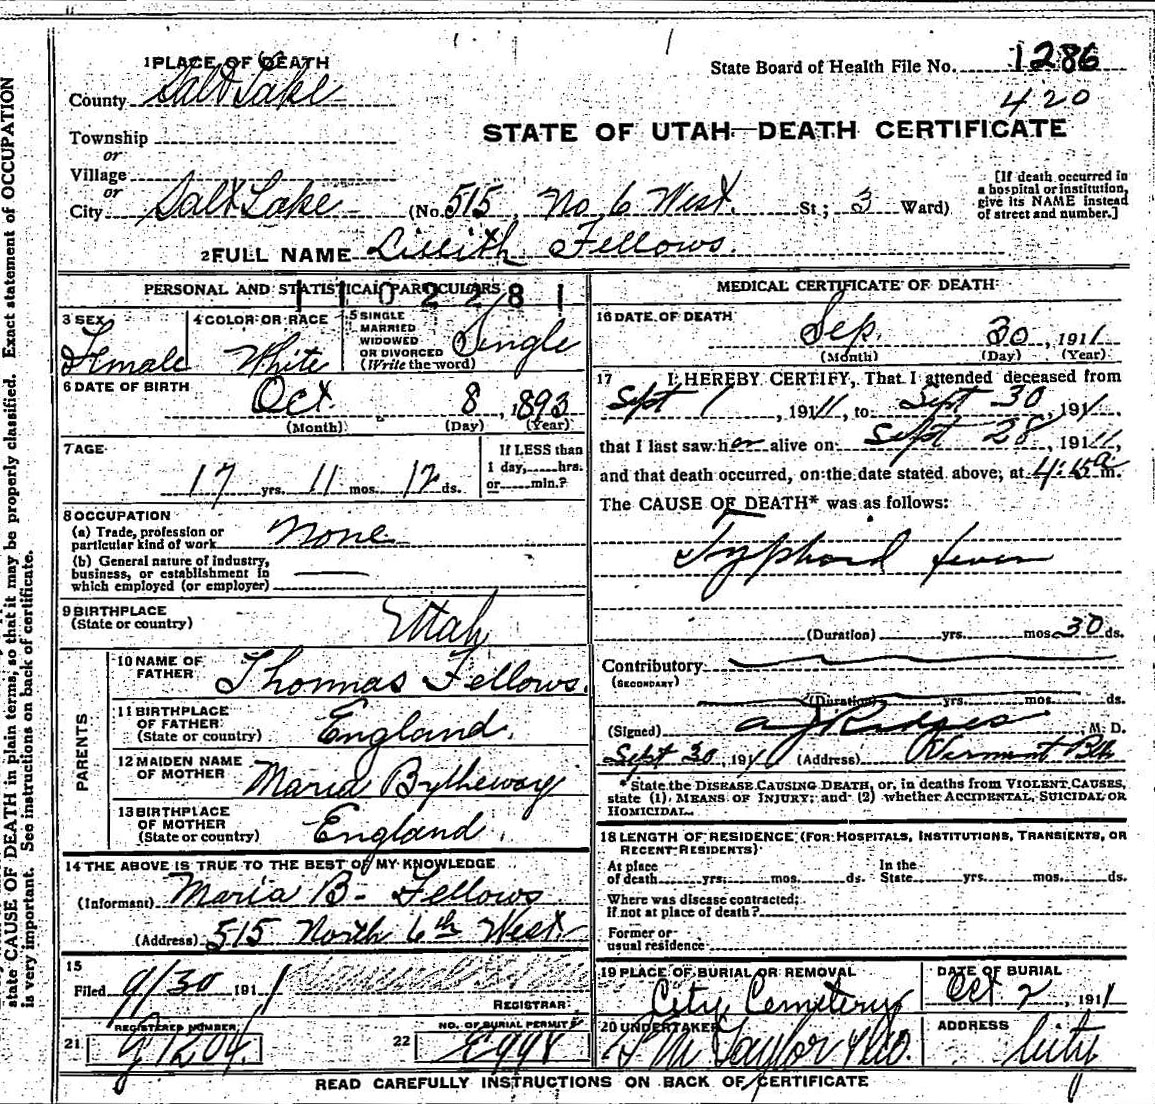 state CAUSE OF DEATH in plain terms, so that it may be properly classified. Exact statement of OCCUPATION
is very important. See instructions on back of certificate.
1 PLACE OF DEATH
County Salt Lake
Township
or
Village
or
City Salt Lake (No. 515, No 6 West. St.; 3 Ward)
State Board of Health File No. 1286
420
STATE OF UTAH—DEATH CERTIFICATE
[If death occurred in
a hospital or institution,
give its NAME instead
of street and number.]
2 FULL NAME Lillith Fellows.
PERSONAL AND STATISTICAL PARTICULARS
1102281
3 SEX
Female
4 COLOR OR RACE
White
5 SINGLE
MARRIED
WIDOWED
OR DIVORCED
(Write the word)
Single
6 DATE OF BIRTH
Oct. 8, 1893
(Month) (Day) (Year)
7 AGE
17 yrs. 11 mos. 12 ds.
If LESS than
1 day, hrs.
or min.?
8 OCCUPATION
(a) Trade, profession or
particular kind of work None
(b) General nature of industry,
business, or establishment in
which employed (or employer)
9 BIRTHPLACE
(State or country) Utah
PARENTS
10 NAME OF
FATHER Thomas Fellows.
11 BIRTHPLACE
OF FATHER
(State or country) England.
12 MAIDEN NAME
OF MOTHER Maria Bytheway
13 BIRTHPLACE
OF MOTHER
(State or country) England.
14 THE ABOVE IS TRUE TO THE BEST OF MY KNOWLEDGE
(Informant) Maria B- Fellows
(Address) 515 North 6th West.
15
Filed 9/30 1911
REGISTRAR
REGISTERED NUMBER
21 g1204.
NO. OF BURIAL PERMIT
22 E998
MEDICAL CERTIFICATE OF DEATH
16 DATE OF DEATH
Sep. 30, 1911
(Month) (Day) (Year)
17 I HEREBY CERTIFY, That I attended deceased from
Sept 1, 1911, to Sept 30, 1911,
that I last saw her alive on Sept 28, 1911,
and that death occurred, on the date stated above, at 4:15 a m.
The CAUSE OF DEATH* was as follows:
Typhoid fever
(Duration) yrs. mos. 30 ds.
Contributory
(SECONDARY)
(Duration) yrs. mos. ds.
(Signed) A J Ridges M. D.
Sept 30, 1911 (Address) Vermont Bld
*State the DISEASE CAUSING DEATH, or, in deaths from VIOLENT CAUSES,
state (1) MEANS OF INJURY; and (2) whether ACCIDENTAL, SUICIDAL OR
HOMICIDAL.
18 LENGTH OF RESIDENCE (FOR HOSPITALS, INSTITUTIONS, TRANSIENTS, OR
RECENT RESIDENTS)
At place
of death yrs. mos. ds.
In the
State yrs. mos. ds.
Where was disease contracted;
If not at place of death?
Former or
usual residence
19 PLACE OF BURIAL OR REMOVAL
City Cemetery
DATE OF BURIAL
Oct 2, 1911
20 UNDERTAKER
S M Taylor & Co.
ADDRESS
City
READ CAREFULLY INSTRUCTIONS ON BACK OF CERTIFICATE